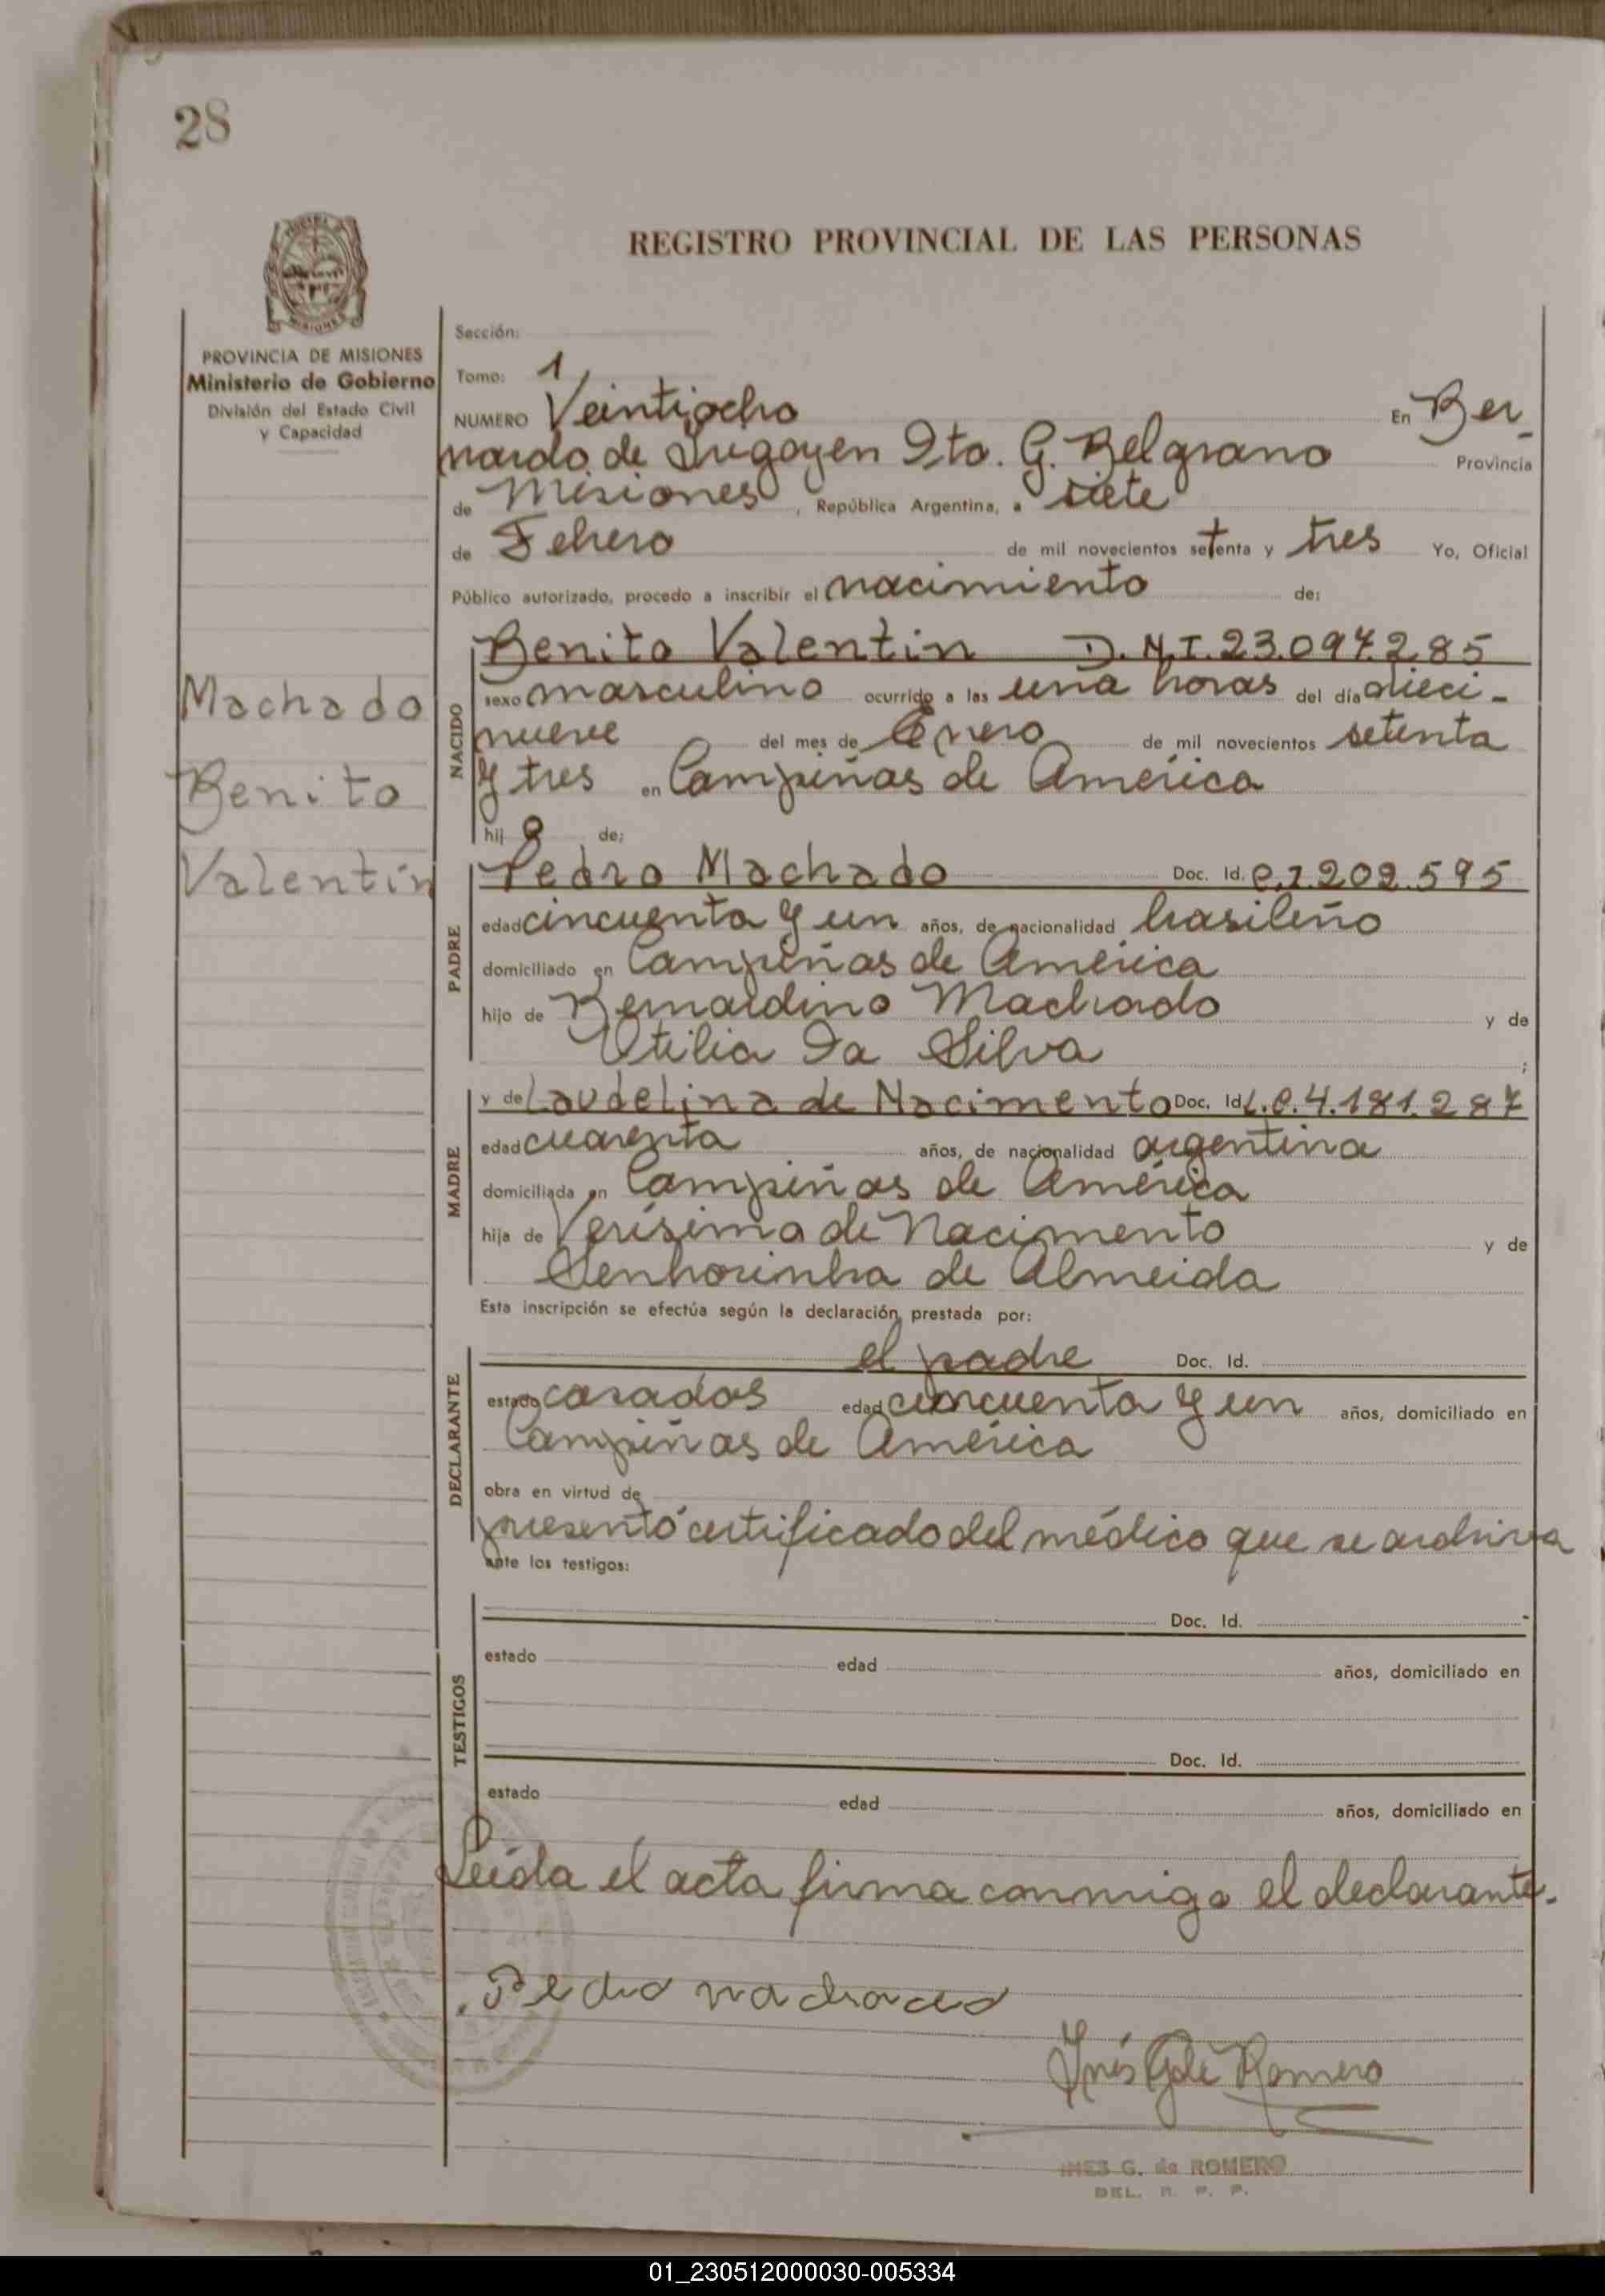 28
REGISTRO PROVINCIAL DE LAS PERSONAS
PROVINCIA DE MISIONES
Ministerio de Gobierno
División del Estado Civil
y Capacidad
Machado
Benito
Valentín
Sección:
Tomo: 1
NUMERO Veintiocho En Ber_
nardo de Irigoyen Dto. G. Belgrano Provincia
de Misiones, República Argentina, a siete
de Febrero de mil novecientos setenta y tres Yo, Oficial
Público autorizado, procedo a inscribir el nacimiento de:
NACIDO
Benito Valentin D.N.I. 23.097.285
sexo masculino ocurrido a las una horas del día dieci-
nueve del mes de Enero de mil novecientos setenta
y tres en Campiñas de América
hijo de:
PADRE
Pedro Machado Doc. Id. C.I. 202.595
edad cincuenta y un años, de nacionalidad brasileño
domiciliado en Campiñas de América
hijo de Bernardino Machado y de
Utilia Da Silva ;
MADRE
y de Laudelina de Nacimento Doc. Id. L.C. 4.181.287
edad cuarenta años, de nacionalidad argentina
domiciliada en Campiñas de América
hija de Verísimo de Nacimento y de
Senhorinha de Almeida
Esta inscripción se efectúa según la declaración prestada por:
DECLARANTE
el padre Doc. Id.
estado casados edad cincuenta y un años, domiciliado en
Campiñas de América
obra en virtud de
presentó certificado del médico que se archiva
ante los testigos:
TESTIGOS
Doc. Id.
estado edad años, domiciliado en
Doc. Id.
estado edad años, domiciliado en
Leída el acta firma conmigo el declarante.
Pedro machado
Inés G de Romero
INES G. de ROMERO
DEL. R. P. P.
01_230512000030-005334